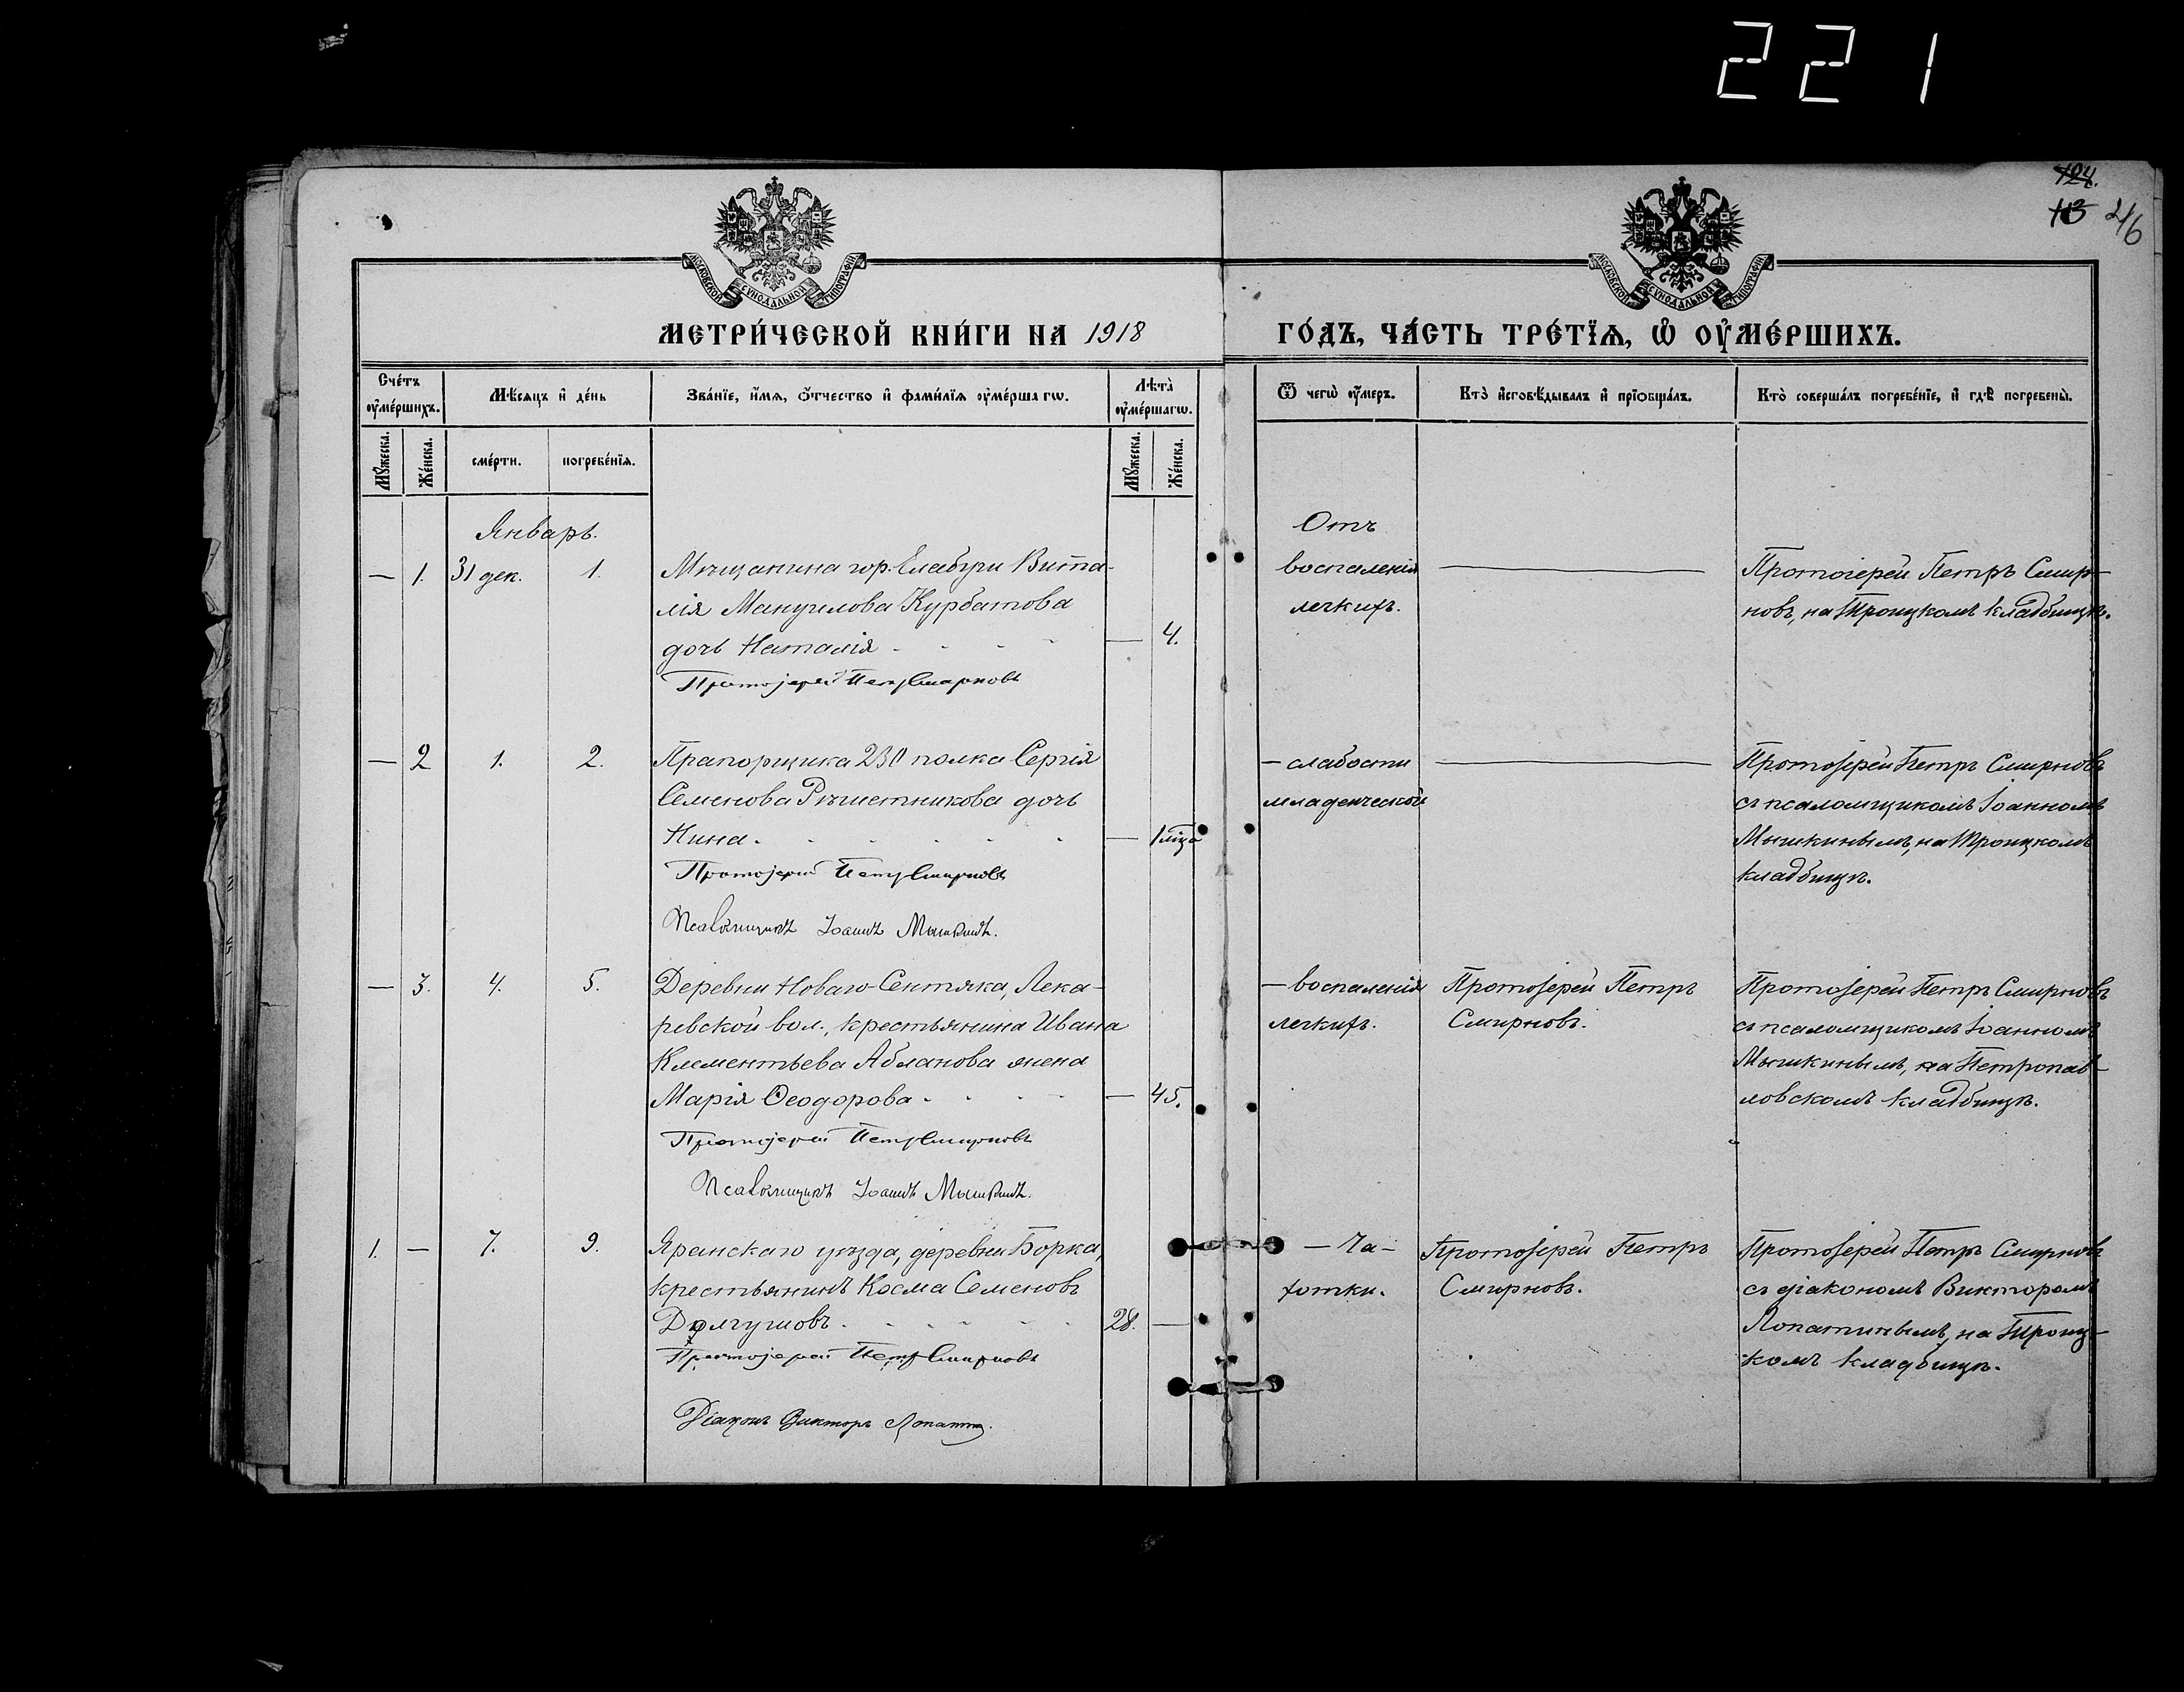 221
124.
113 216
МОСКОВСКОЙ СѴНОДАЛЬНОЙ ТИПОГРАФІИ
МОСКОВСКОЙ СѴНОДАЛЬНОЙ ТИПОГРАФІИ
МЕТРИ́ЧЕСКОЙ КНИ́ГИ НА 1918 ГО́ДЪ, ЧА́СТЬ ТРЕ́ТЇѦ, Ѽ ОУ҆МЕ́РШИХЪ.
Сче́тъ оу҆ме́ршихъ.
Мѣ́сѧцъ и҆ де́нь
Зва́нїе, и҆́мѧ, ѻ҆́тчество и҆ фами́лїѧ оу҆ме́ршагѡ.
Лѣта̀ оу҆ме́ршагѡ.
Ѿ чегѡ̀ оу҆́меръ.
Кто̀ и҆сповѣ́дывалъ и҆ прїѻбща́лъ.
Кто̀ соверша́лъ погребе́нїе, и҆ гдѣ̀ погребены̀.
Мꙋ́жеска.
Же́нска.
сме́рти.
погребе́нїѧ.
Мꙋ́жеска.
Же́нска.
Январь.
— 1. 31 дек. 1.
Мѣщанина гор. Елабуги Вита-
лія Мануилова Курбатова
дочь Наталія — 4.
Протоіерей Петръ Смирновъ
Отъ
воспаленія
легкихъ.
Протоіерей Петръ Смир-
новъ, на Троицкомъ кладбищѣ.
— 2 1. 2.
Прапорщика 230 полка Сергія
Семенова Рѣшетникова дочь
Нина. — 1 мѣсца
Протоіерей Петръ Смирновъ
Псаломщикъ Іоаннъ Мышкинъ.
— слабости
младенческой
Протоіерей Петръ Смирновъ
съ псаломщикомъ Іоанномъ
Мышкинымъ, на Троицкомъ
кладбищѣ.
— 3. 4. 5.
Деревни Новаго-Сентяка, Лека-
ревской вол., крестьянина Ивана
Клементьева Абланова жена
Марія Ѳеодорова — 45.
Протоіерей Петръ Смирновъ
Псаломщикъ Іоаннъ Мышкинъ.
— воспаленія
легкихъ.
Протоіерей Петръ
Смирновъ.
Протоіерей Петръ Смирновъ
съ псаломщикомъ Іоанномъ
Мышкинымъ, на Петропав-
ловскомъ кладбищѣ.
1. — 7. 9.
Яранскаго уѣзда, деревни Борка,
крестьянинъ Косма Семеновъ
Долгушовъ. 28. —
Протоіерей Петръ Смирновъ
Діаконъ Викторъ Лопатинъ.
— Ча-
хотки.
Протоіерей Петръ
Смирновъ.
Протоіерей Петръ Смирновъ
съ діакономъ Викторомъ
Лопатинымъ, на Троиц-
комъ кладбищѣ.